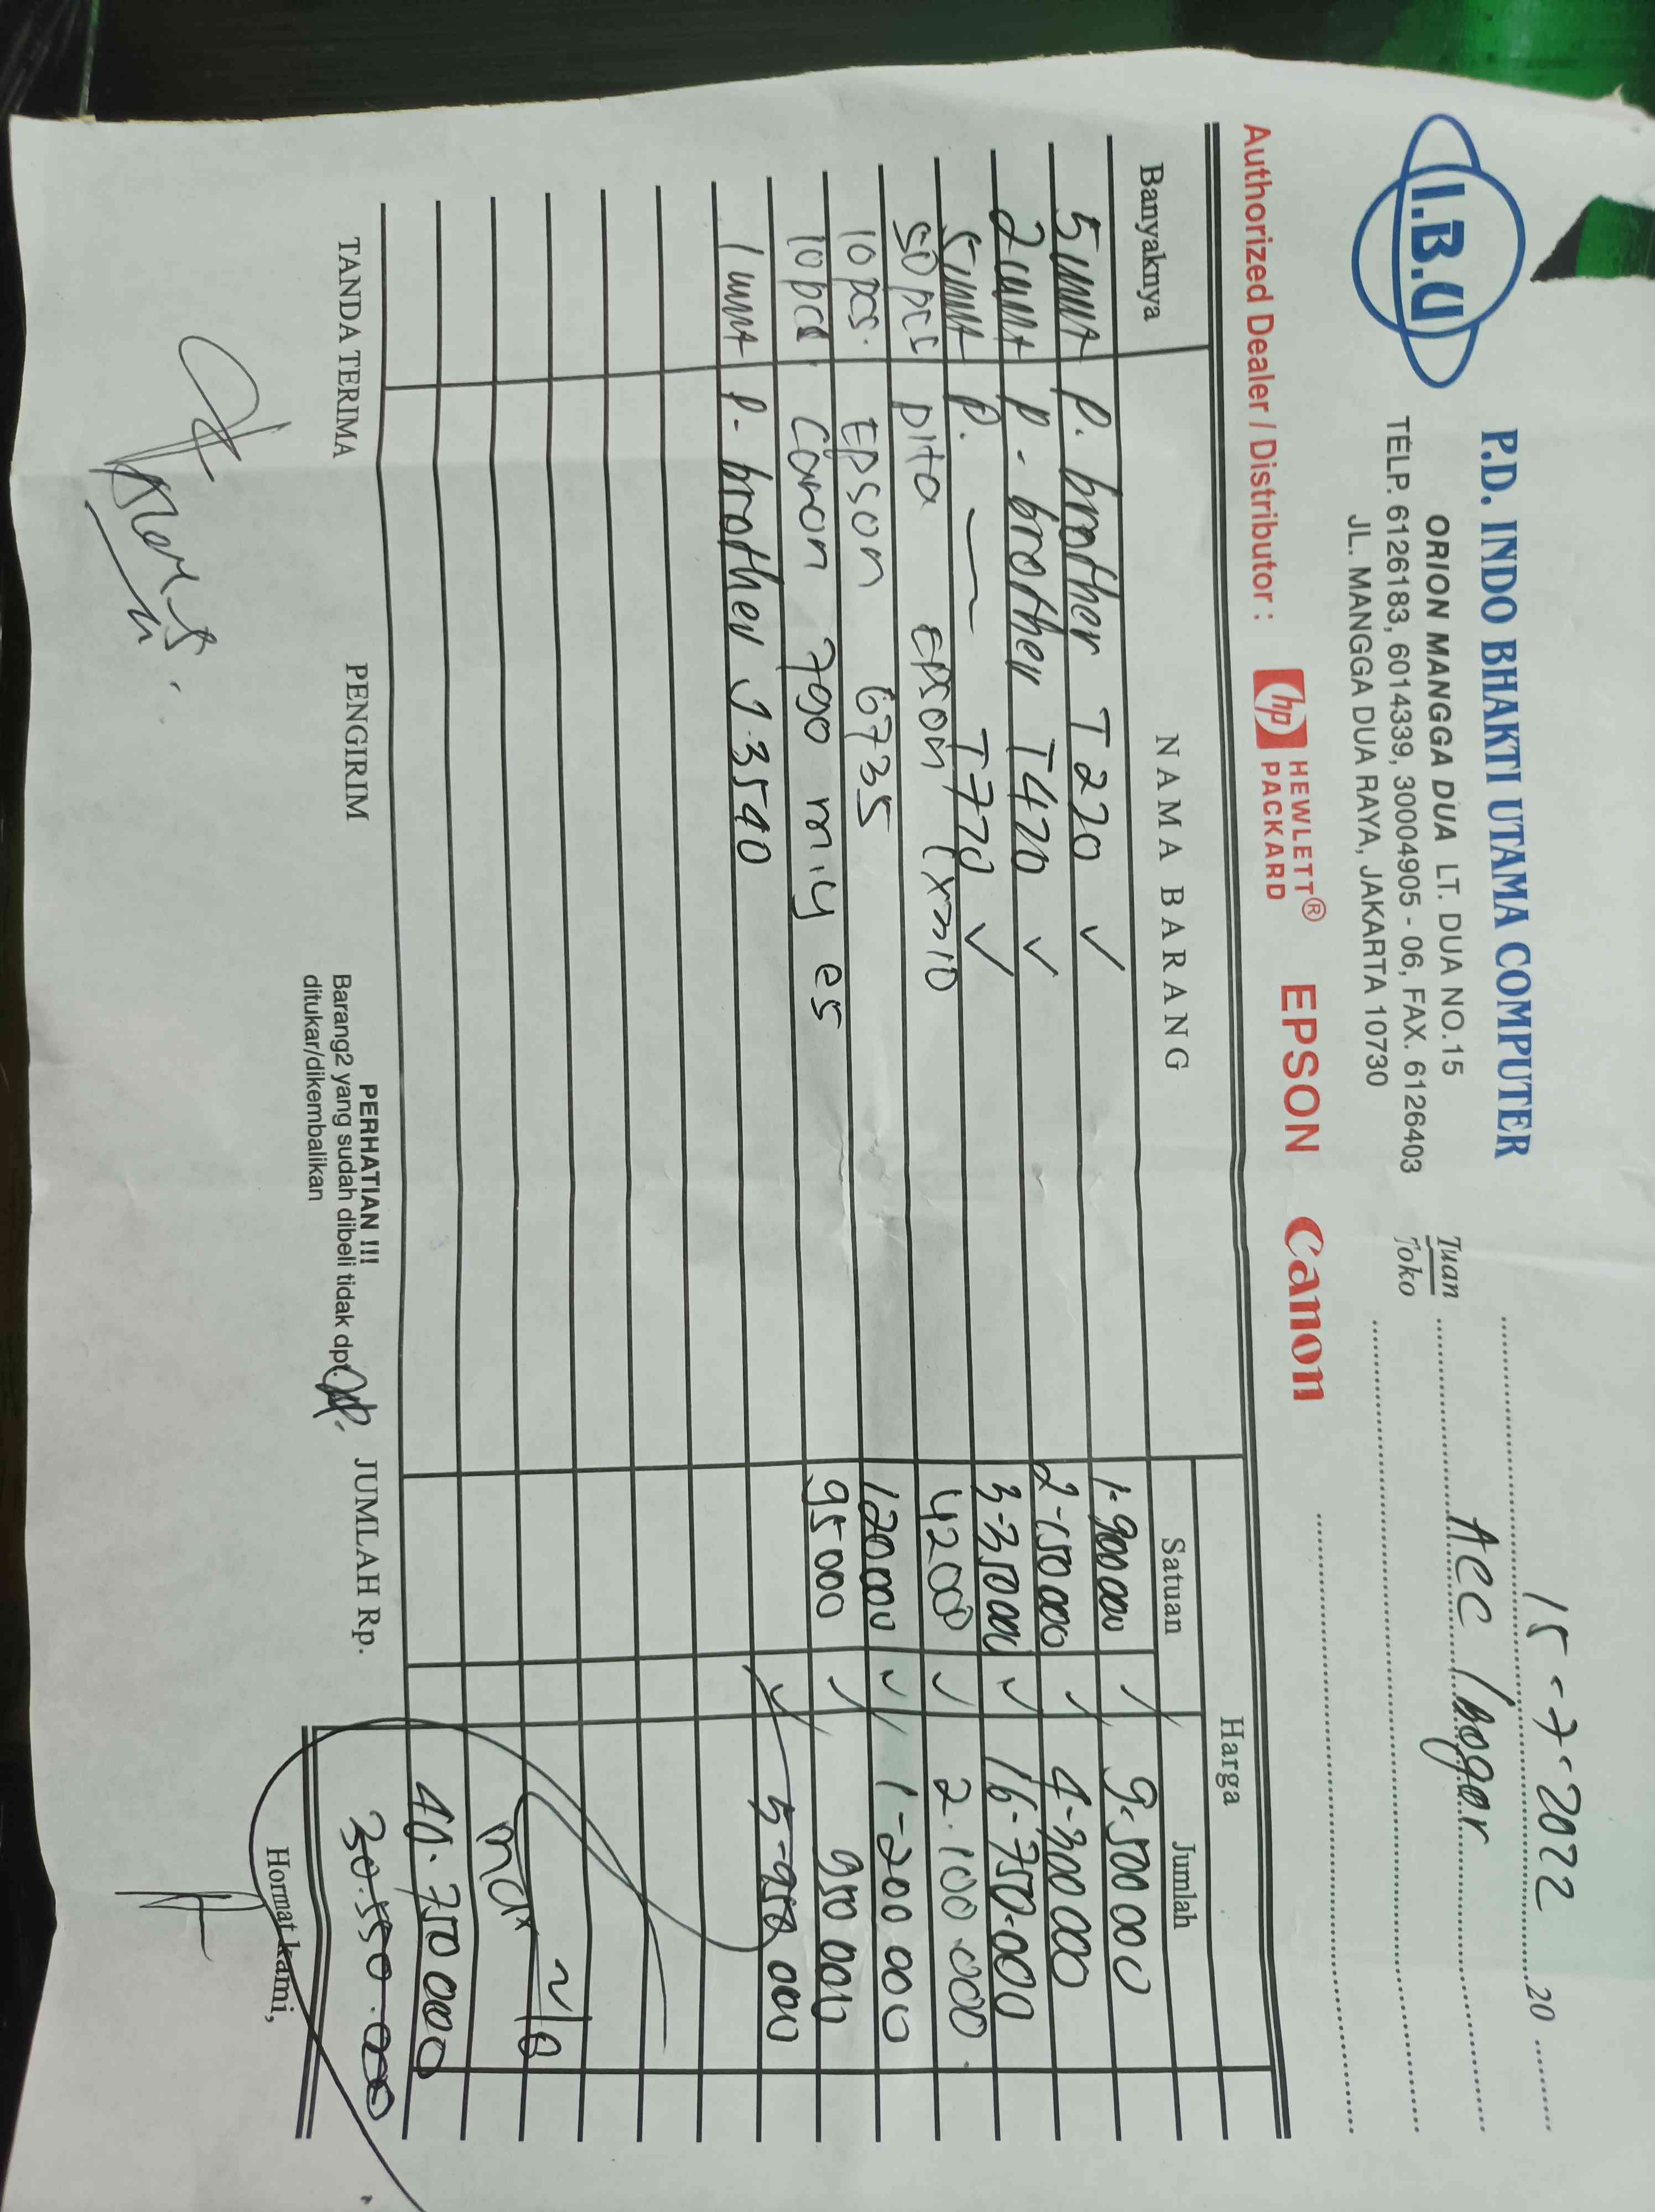 I.B.U
P.D. INDO BHAKTI UTAMA COMPUTER
ORION MANGGA DUA LT. DUA NO.15
TELP. 6126183, 6014339, 30004905 - 06, FAX. 6126403
JL. MANGGA DUA RAYA, JAKARTA 10730
15-7-2022 20
Tuan
Toko
Acc / bogor
Authorized Dealer / Distributor : hp HEWLETT® PACKARD EPSON Canon
Banyaknya NAMA BARANG Harga
Satuan Jumlah
5 unit P. brother T220 ✓ 1.900000 ✓ 9.500000
2 unit P - brother T420 ✓ 2-150000 ✓ 4.300000
5 unit P. — T720 ✓ 3-350000 ✓ 16.750.000
50 pcs pita Epson 42000 ✓ 2.100.000
10 pcs. Epson 6735 120000 ✓ 1-200000
10 pcs Canon 790 95000 ✓ 950000
1 unit P- brother J.3540 ✓ 5-950.000
40.750000
30.550.000
TANDA TERIMA PENGIRIM
PERHATIAN !!!
Barang2 yang sudah dibeli tidak dpt.
ditukar/dikembalikan
JUMLAH Rp.
Hormat kami,